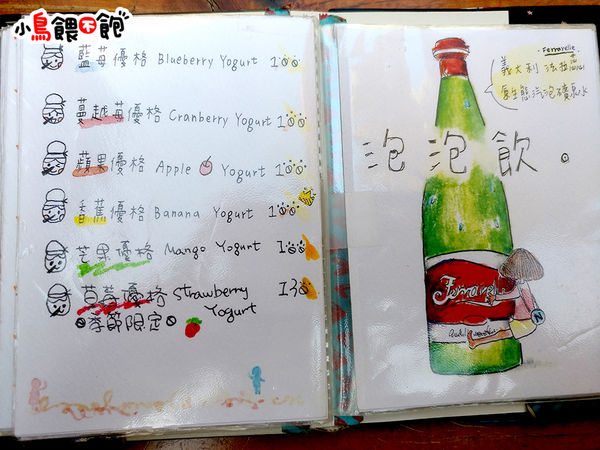 小鳥餵不飽
藍莓優格 Blueberry Yogurt 100
蔓越莓優格 Cranberry Yogurt 100
蘋果優格 Apple Yogurt 100
香蕉優格 Banana Yogurt 100
芒果優格 Mango Yogurt 100
草莓優格 Strawberry Yogurt 130
季節限定
Ferrarelle
義大利 法拉
原生態汽泡礦泉水
泡泡飲。
Ferrarelle
N